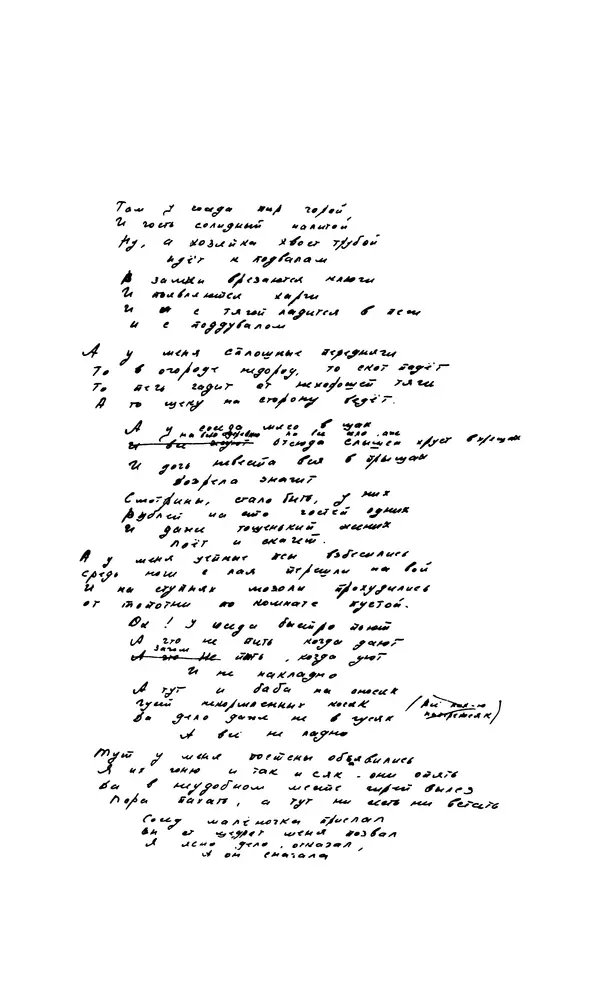 Там у соседа пир горой,
И гость солидный налитой
Ну, а хозяйка хвост трубой
идёт к подвалам
В замки врезаются ключи
И появляются харчи
И с тягой ладится в печи
и с поддувалом
А у меня сплошные передряги
То в огороде недород, то скот падёт
То печь чадит от нехорошей тяги
А то щеку на сторону ведёт.
А у соседа мясо в щах
на всю деревню
И все жуют отсюда слышен хруст в хрящах
И дочь невеста вся в прыщах
дозрела значит
Смотрины, стало быть, у них
Рублей на сто гостей одних
И даже тощенький жених
поёт и скачет.
А у меня цепные псы взбесились
Средь ночи с лая перешли на вой
И на ступнях мозоли прохудились
от топотни по комнате пустой.
Ох! У соседа быстро пьют
А что не пить когда дают
Зачем
А что не петь, когда уют
И не накладно
А тут и баба на сносях
Гусей некормленных косяк
Да дело даже не в гусях
А всё не ладно
Тут у меня постены объявились
Я их гоню и так и сяк - они опять
Да в неудобном месте чирей вылез
Пора пахать, а тут ни сесть ни встать
Сосед малёночка прислал
Он от щедрот меня позвал
Я ясно дело, отказал,
А он сначала